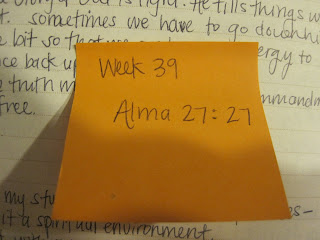 is right. He tills things w
it. sometimes we have to go downhi
bit so that
ergy to
ce back up
e truth
ommandm
free.
Week 39
Alma 27:27
my stu
es-
it a spiritual environment.